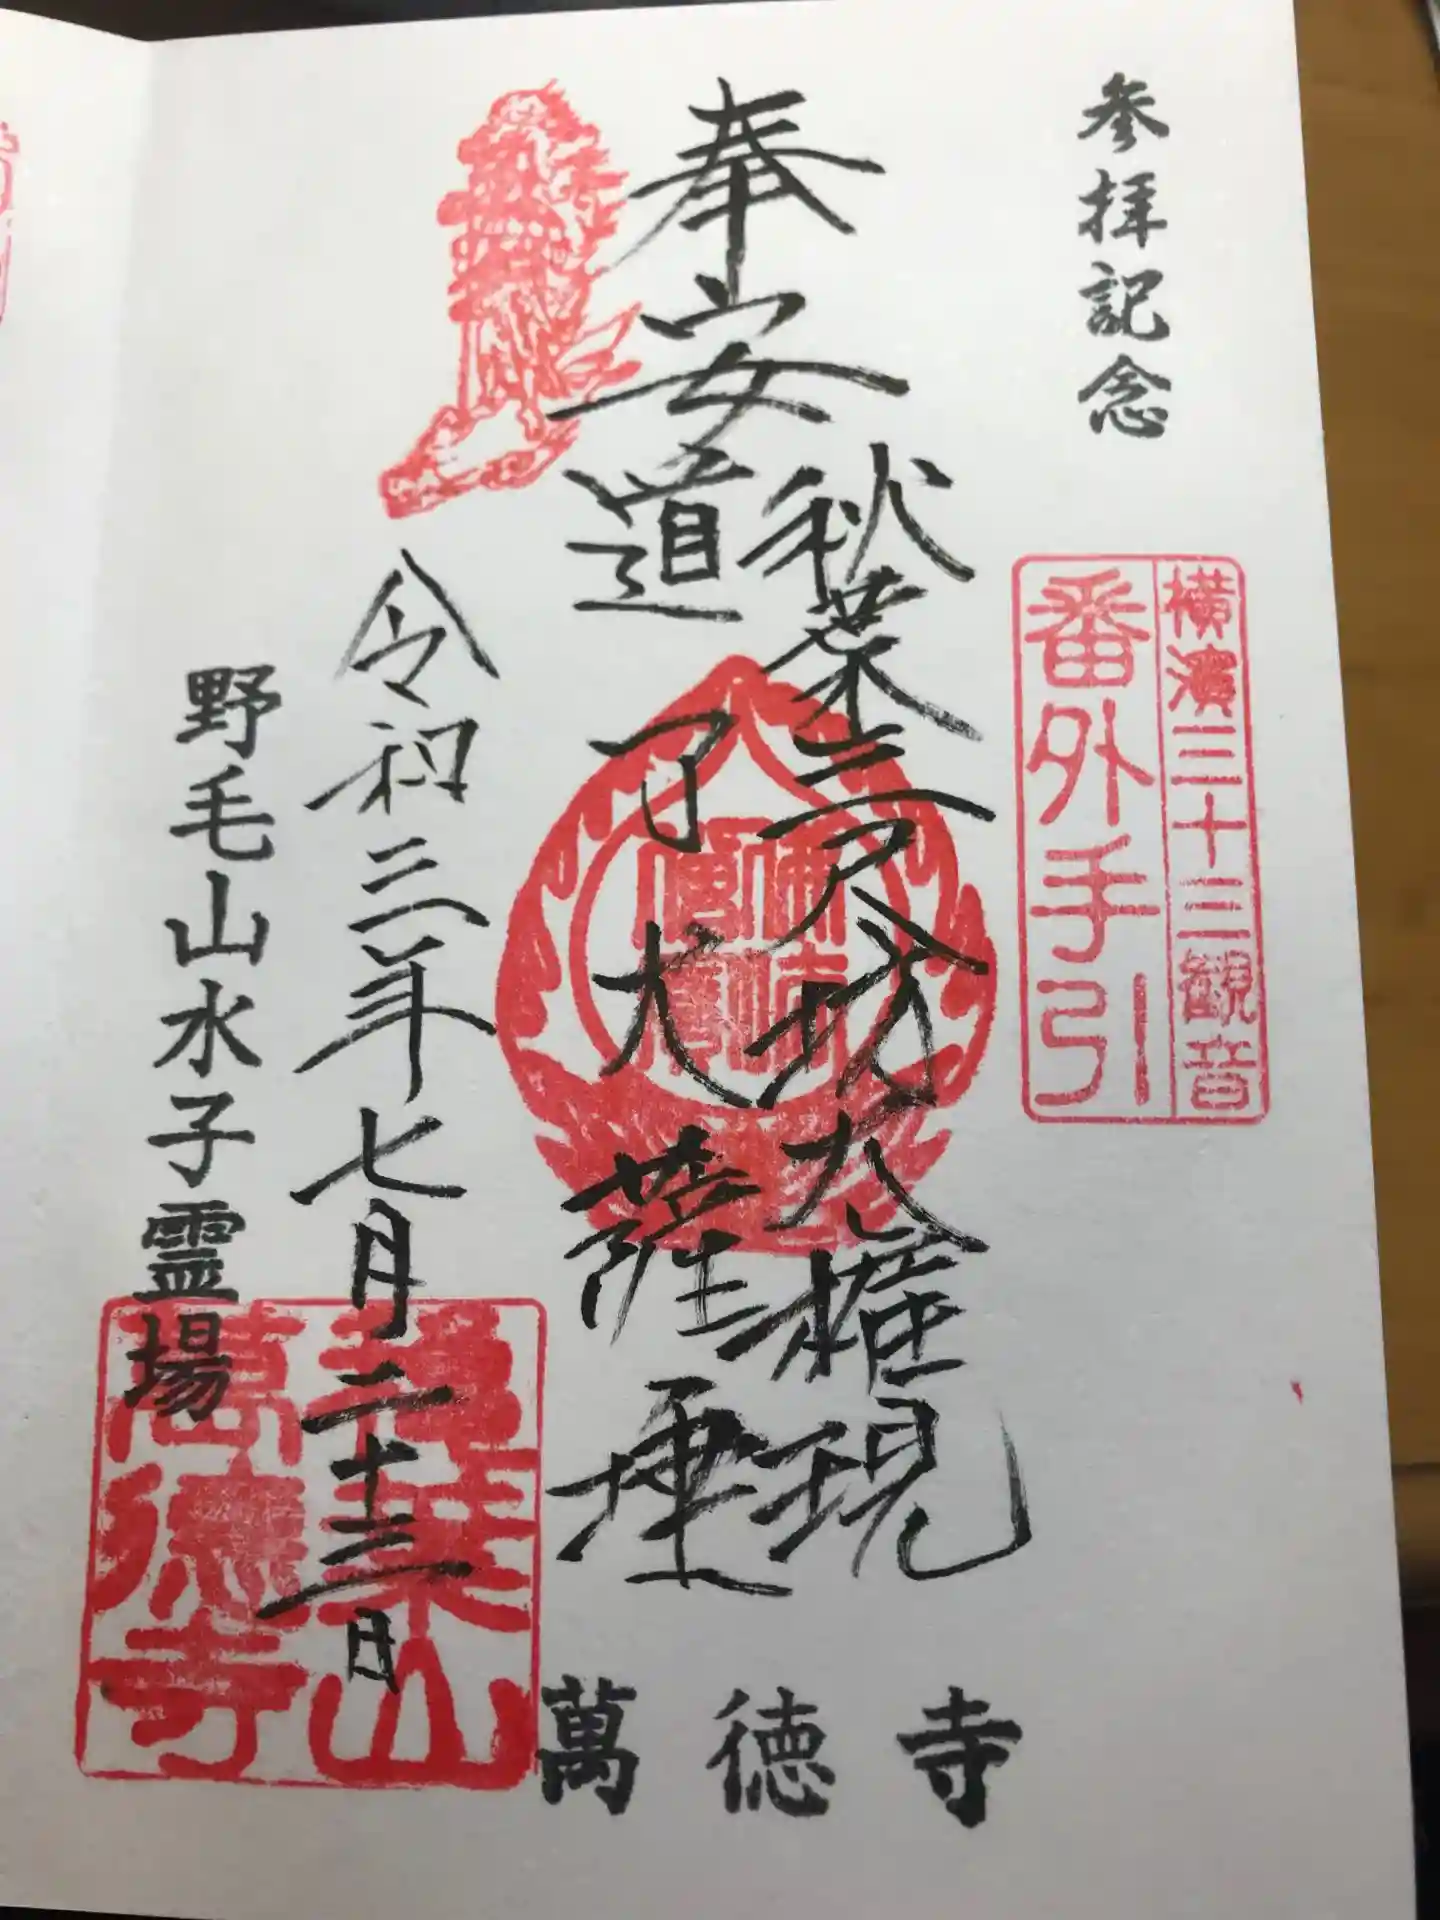 参拝記念
横濱三十三観音
番外手引
奉安
秋葉三尺坊大権現
道了大薩埵
令和三年七月二十三日
野毛山水子霊場
葉山
萬德寺
萬徳寺